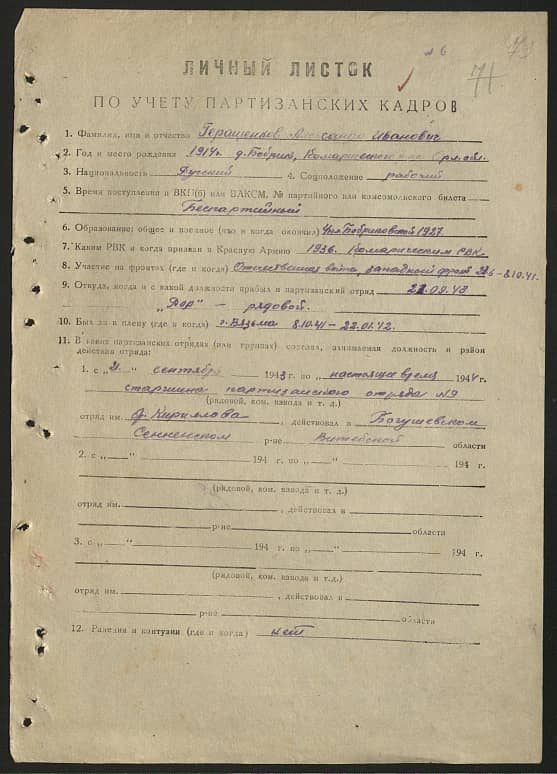 № 6
71
ЛИЧНЫЙ ЛИСТОК
ПО УЧЕТУ ПАРТИЗАНСКИХ КАДРОВ
1. Фамилия, имя и отчество Герашенков Александр Иванович
2. Год и место рождения 1914г. д. Бобрик, Комаричского р-на Орл. обл.
3. Национальность Русский 4. Соцположение рабочий
5. Время поступления в ВКП(б) или ВЛКСМ, № партийного или комсомольского билета
Беспартийный
6. Образование: общее и военное (что и когда окончил) Бобриковской 1927.
7. Каким РВК и когда призван в Красную Армию 1936. Комаричским РВК.
8. Участие на фронтах (где и когда) Отечественная война, западный фронт - 8.10.41.
9. Откуда, когда и с какой должности прибыл в партизанский отряд 21.09.43
- рядовой.
10. Был ли в плену (где и когда) г. Вязьма 8.10.41 - 22.01.42.
11. В каких партизанских отрядах (или группах) состоял, занимаемая должность и район
действия отряда:
1. с „21 сентября 1943 г. по „настоящее время 1944 г.
старшина партизанского отряда №9
(рядовой, ком. взвода и т. д.)
отряд им. ф. Кириллова, действовал в Богушевском
Сенненском р-не Витебской области
2. с „—“ 194 г. по „—“ 194 г.
(рядовой, ком. взвода и т.д.)
отряд им. , действовал в
р-не области
3. с „—“ 194 г. по „—“ 194 г.
(рядовой, ком. взвода и т.д.)
отряд им. , действовал в
р-не области
12. Ранения и контузии (где и когда) нет